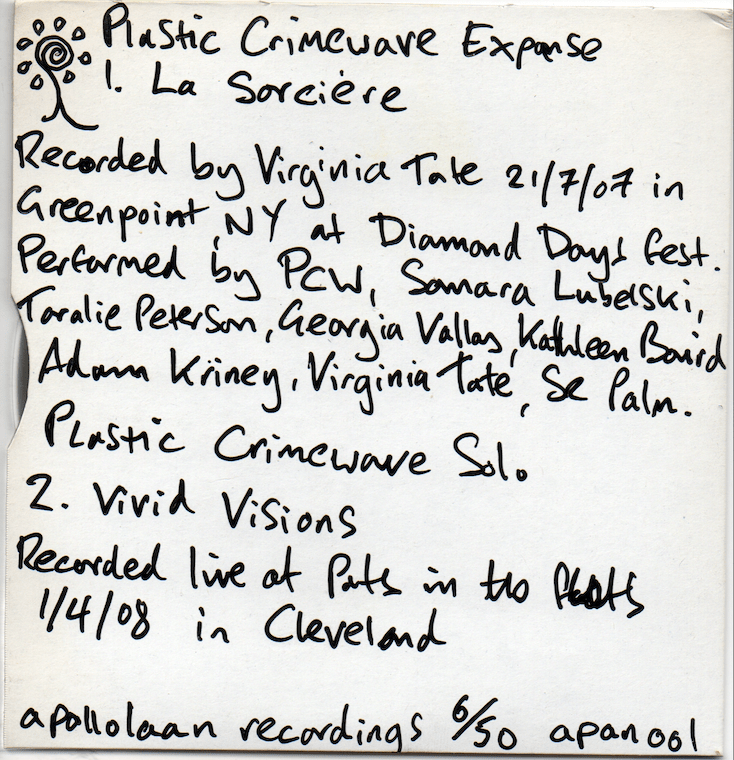 Plastic Crimewave Expanse
1. La Sorcière
Recorded by Virginia Tate 21/7/07 in
Greenpoint, NY at Diamond Days fest.
Performed by PCW, Samara Lubelski,
Taralie Peterson, Georgia Vallas, Kathleen Baird
Adam Kriney, Virginia Tate, Se Palm.
Plastic Crimewave Solo
2. Vivid Visions
Recorded live at Pats in the Flats
1/4/08 in Cleveland
apollolaan recordings 6/50 apan001